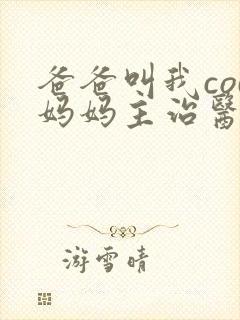 爸爸叫我co
妈妈主治醫
游雪晴